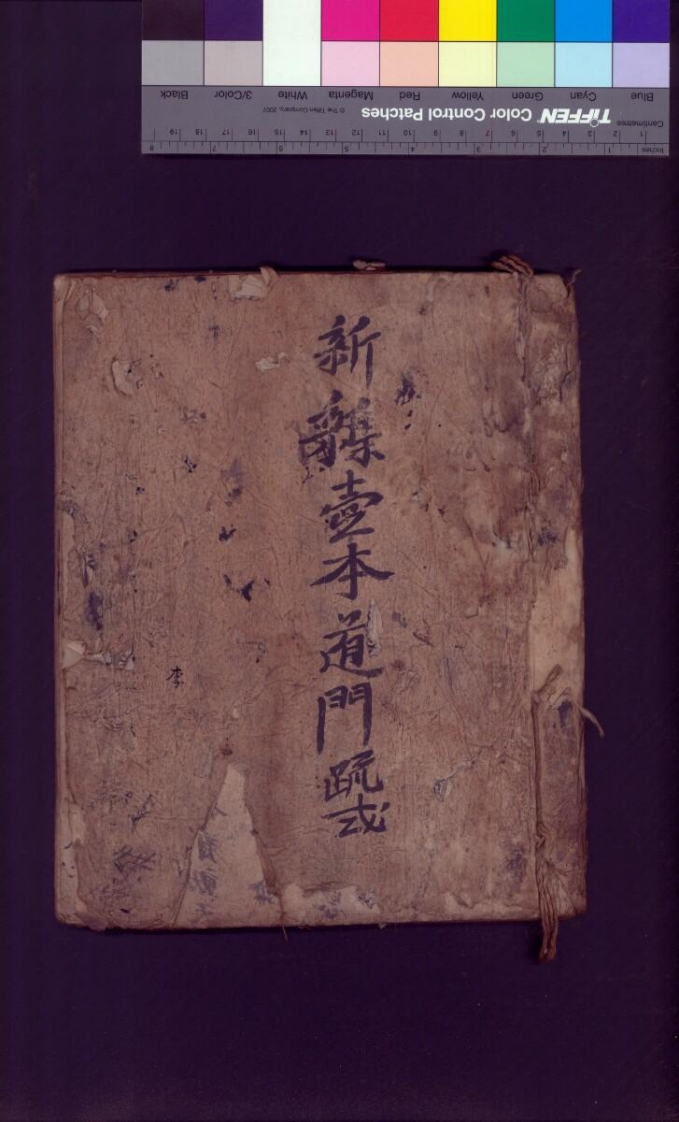 Blue Cyan Green Yellow Red Magenta White 3/Color Black
Centimetres TIFFEN Color Control Patches © The Tiffen Company, 2007
1 2 3 4 5 6 7 8 9 10 11 12 13 14 15 16 17 18 19
Inches 1 2 3 4 5 6 7 8
新雜壹本道門疏式
李